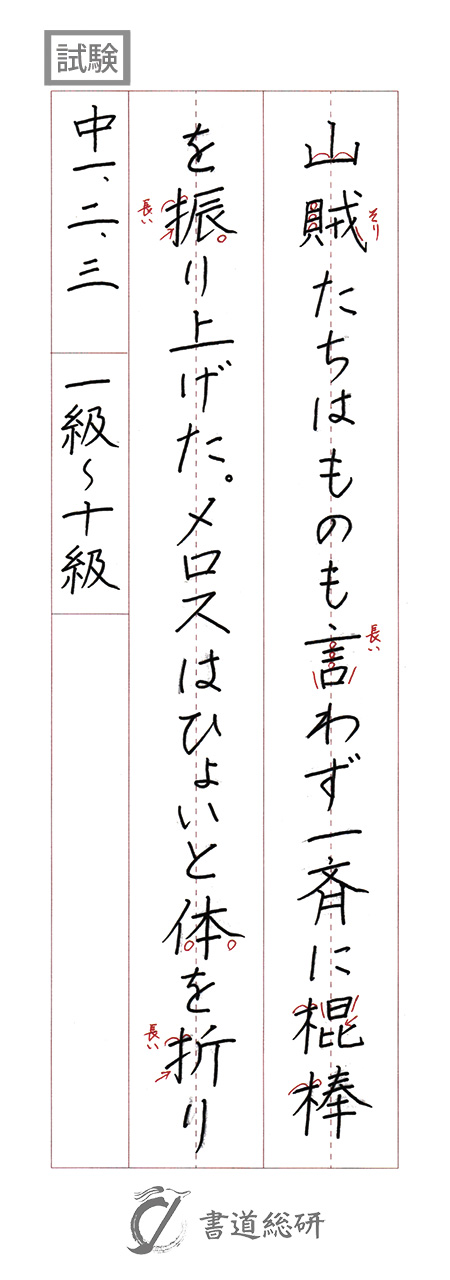 試験
山賊たちはものも言わず一斉に棍棒
を振り上げた。メロスはひょいと体を折り
中一、二、三
一級〜十級
そり
長い
長い
長い
書道総研